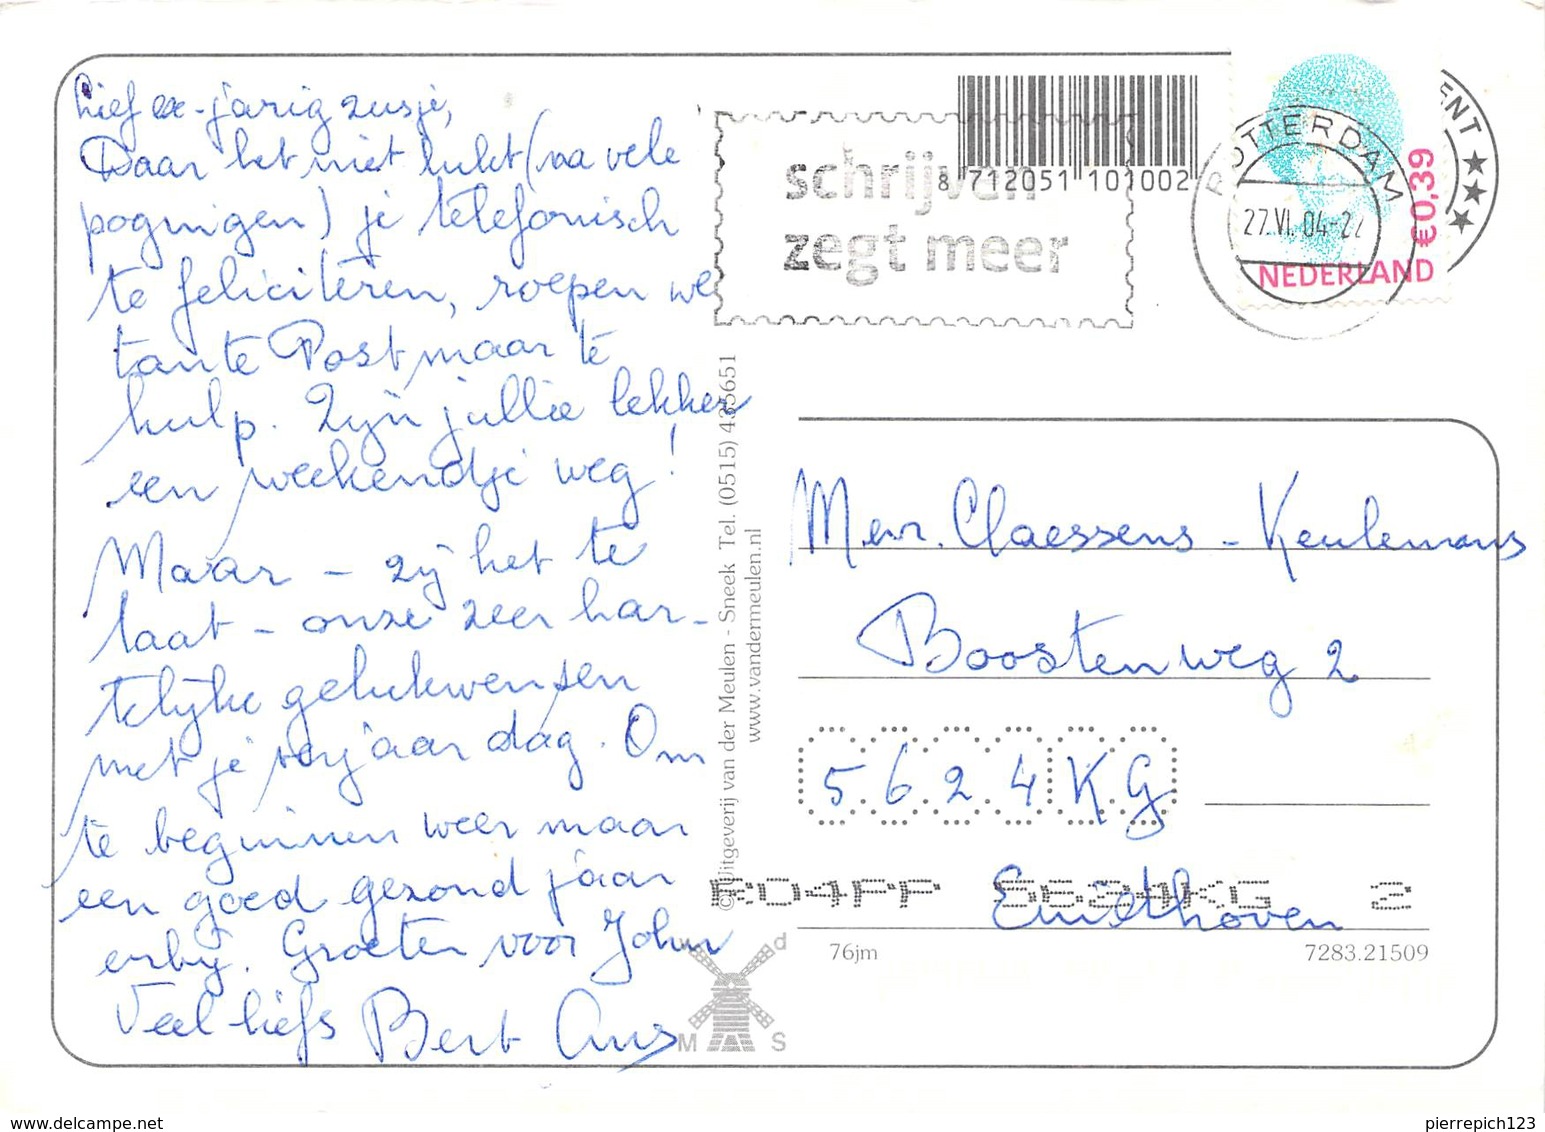 Lief ex-jarig zusje,
Daar het niet lukt (na vele
pogingen) je telefonisch
te feliciteren, roepen we
tante Post maar te
hulp. Zijn jullie lekker
een weekendje weg!
Maar - zij het te
laat - onze zeer har-
telijke gelukwensen
met je verjaardag. Om
te beginnen weer maar
een goed gezond jaar
erbij. Groeten voor John
Veel liefs Bert Ans
schrijven
zegt meer
8 712051 101002
ROTTERDAM
27.VI.04-2
ENT ★★★
€0,39
NEDERLAND
© Uitgeverij van der Meulen - Sneek Tel. (0515) 435651
www.vandermeulen.nl
Mevr. Claessens - Keulemans
Boostenweg 2
5624KG
Eindhoven
RO4PP 5624KG 2
76jm
7283.21509
d
M S
pierrepich123